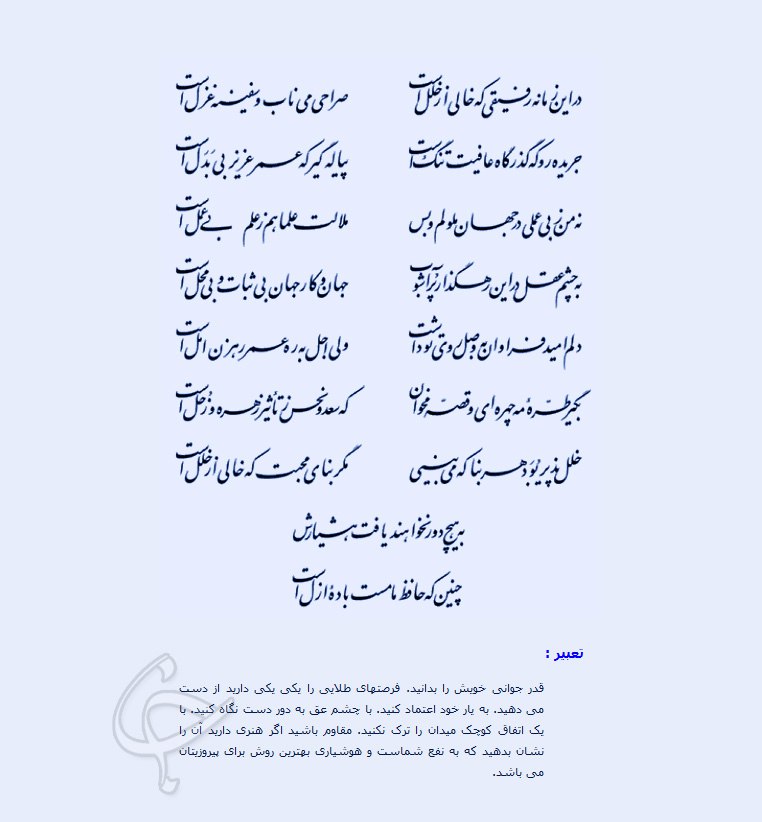 در این زمانه رفیقی که خالی از خلل است صراحی می ناب و سفینه غزل است
جریده رو که گذرگاه عافیت تنگ است پیاله گیر که عمر عزیز بی بدل است
نه من ز بی عملی در جهان ملولم و بس ملالت علما هم ز علم بی عمل است
به چشم عقل در این رهگذار پرآشوب جهان و کار جهان بی ثبات و بی محل است
دلم امید فراوان به وصل روی تو داشت ولی اجل به ره عمر رهزن امل است
بگیر طره مه چهره ای و قصه مخوان که سعد و نحس ز تأثیر زهره و زحل است
خلل پذیر بود هر بنا که می بینی مگر بنای محبت که خالی از خلل است
به هیچ دور نخواهند یافت هشیارش
چنین که حافظ ما مست باده ازل است
تعبیر :
قدر جوانی خویش را بدانید. فرصتهای طلایی را یکی یکی دارید از دست
می دهید. به یار خود اعتماد کنید. با چشم عق به دور دست نگاه کنید. با
یک اتفاق کوچک میدان را ترک نکنید. مقاوم باشید اگر هنری دارید آن را
نشان بدهید که به نفع شماست و هوشیاری بهترین روش برای پیروزیتان
می باشد.